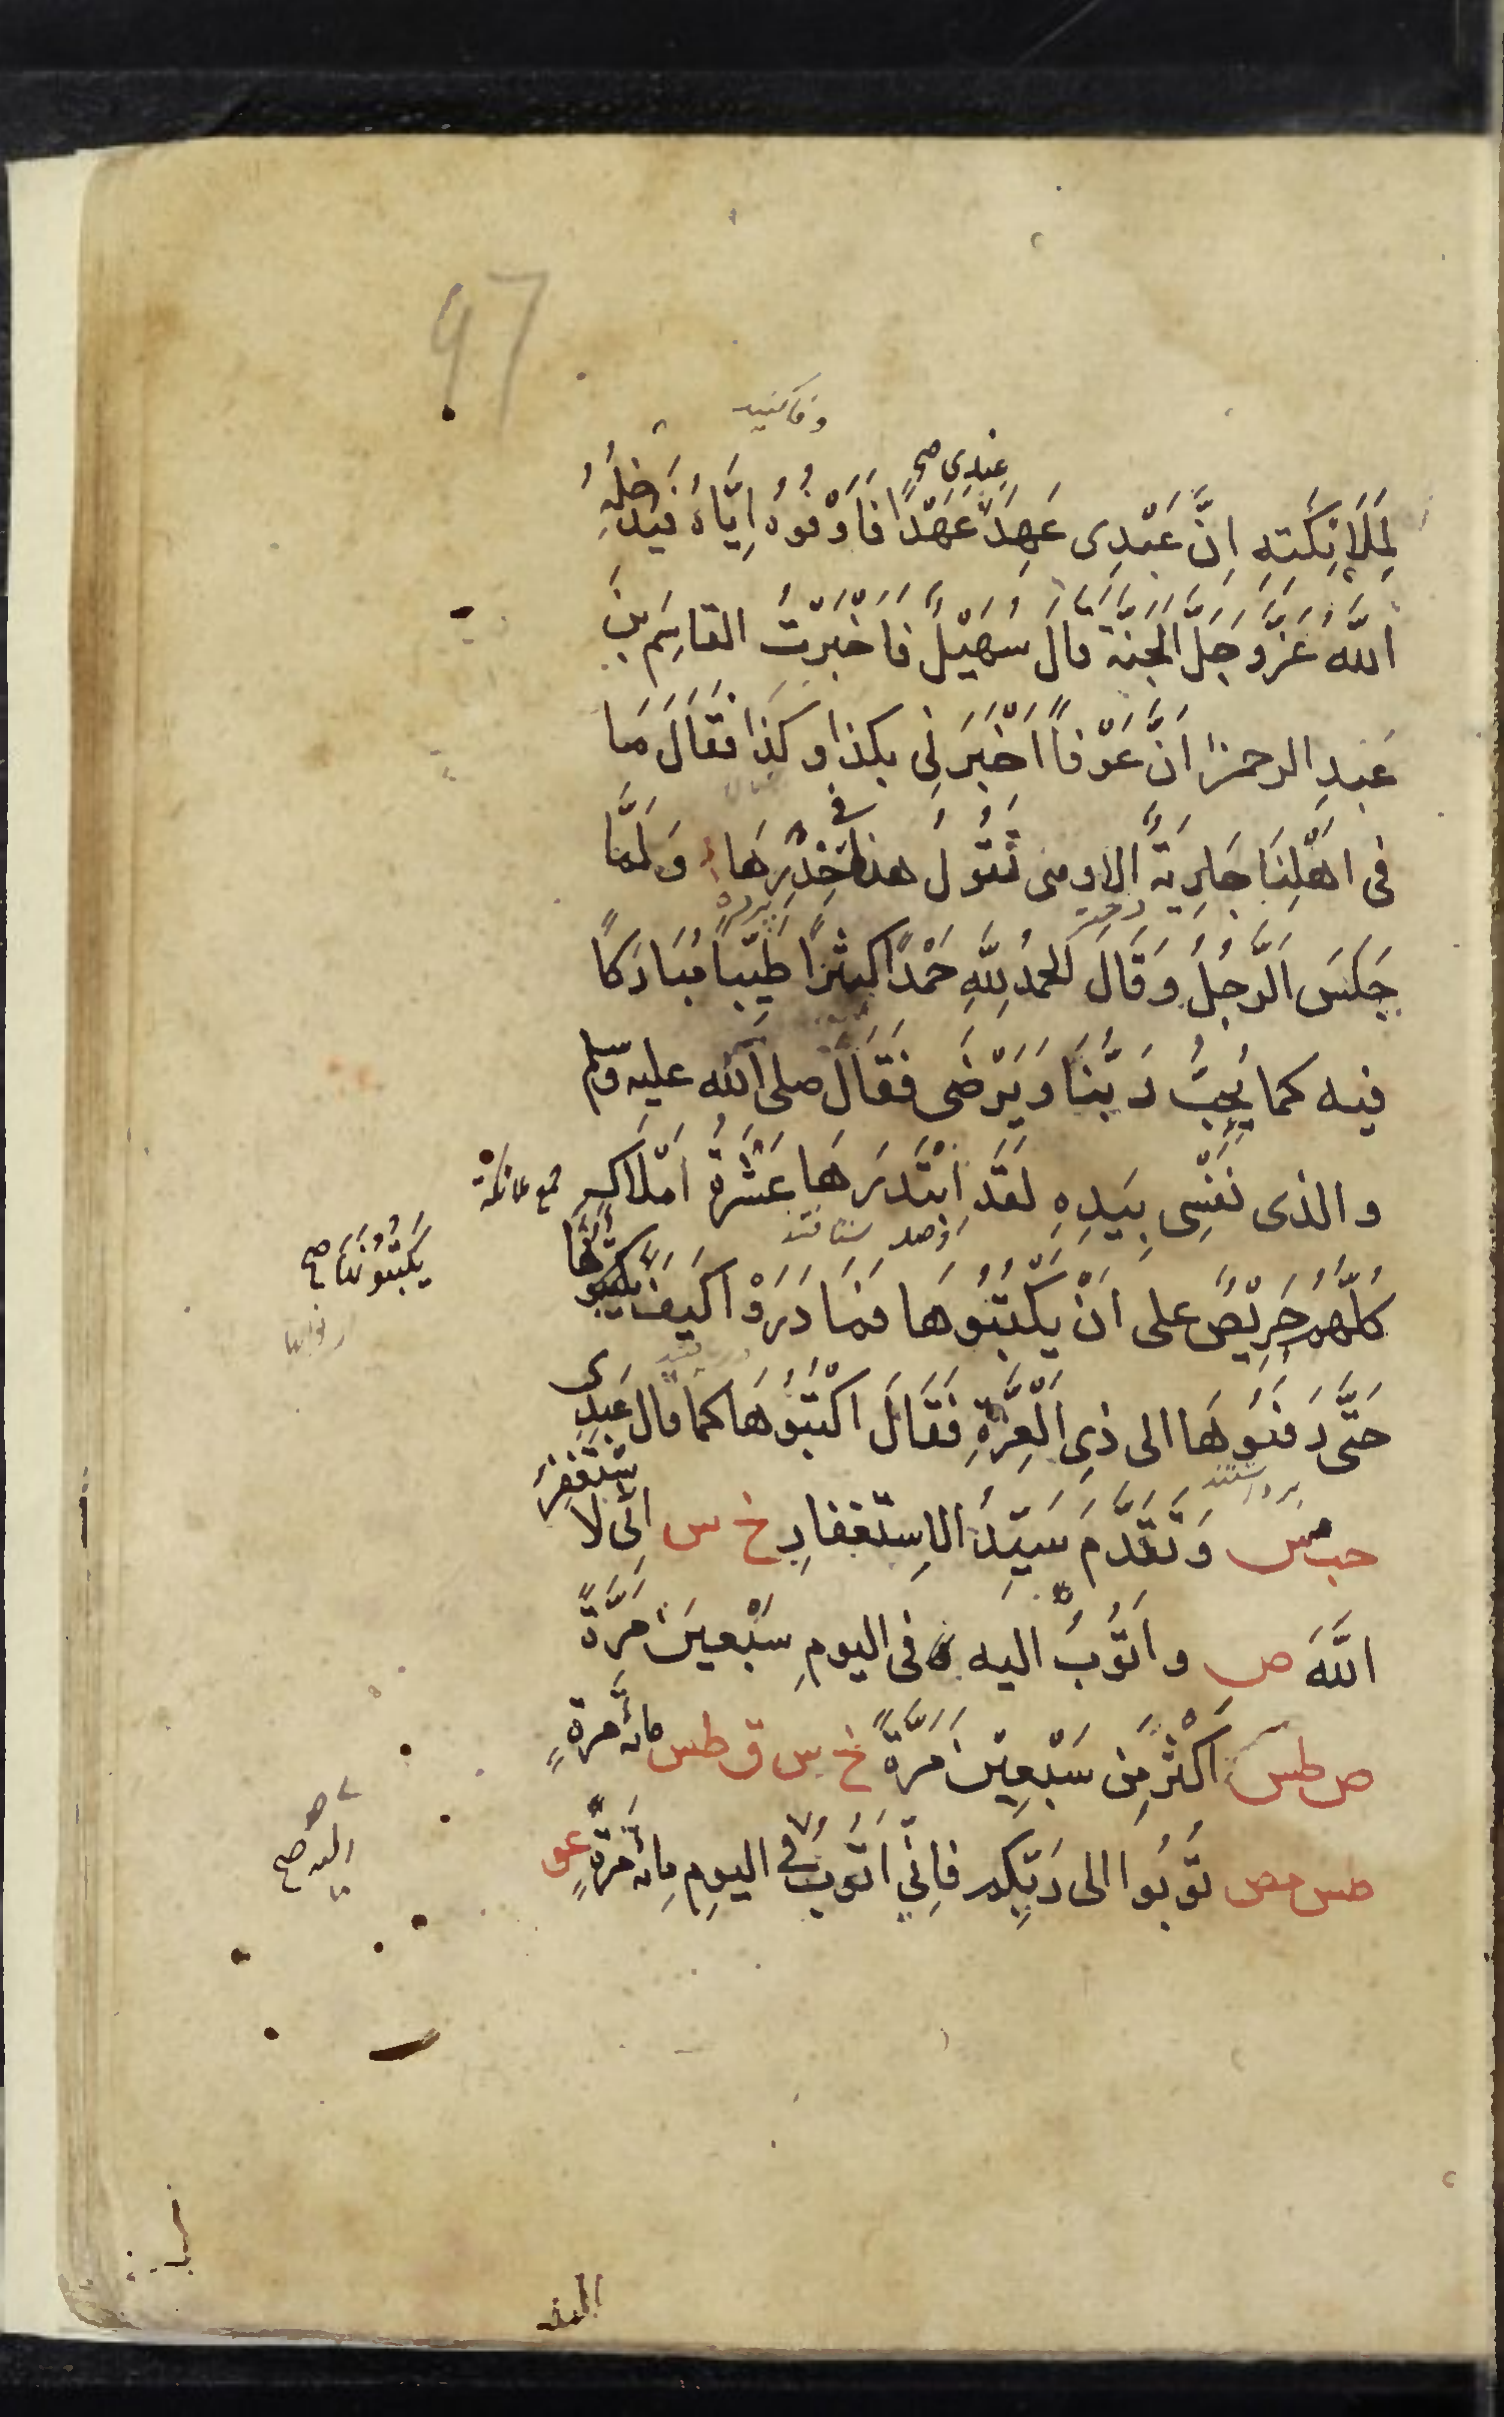 97
وفا کنید
عندی صح
لِمَلَائِكَتِهِ اِنَّ عَبْدِى عَهِدَ عَهْدًا فَاَوْفُوهُ اِيَّاهُ فَيُدْخِلُهُ
اللّٰهُ عَزَّ وَجَلَّ الْجَنَّةَ قَالَ سُهَيْلٌ فَاَخْبَرْتُ القاسِمَ بنَ
عَبدِ الرحمن اَنَّ عَوْفاً اَخْبَرَنِى بكذا و كَذَا فَقَالَ مَا
فى اَهْلِنَا جَارِيَةٌ اِلا وهى تَقُولُ هذا فى خِدْرِهَا وَلَمَّا
جَلَسَ الرَّجُلُ وَقَالَ الحمدُ لِلّٰهِ حَمْدًا كثيرًا طَيِّباً مُبَارَكاً
فيه كما يُحِبُّ رَبُّنَا وَيَرْضَى فَقَالَ صلى اللّٰه عليه وسلم
والذى نَفْسِى بِيَدِهِ لَقَدِ ابْتَدَرَهَا عَشَرَةُ اَمْلَاكٍ
جمع ملائكة
كلُّهُم حَرِيْصٌ على اَنْ يَكْتُبُوهَا فَمَا دَرَوْا كَيْفَ يَكْتُبُوهَا
يَكْتُبُونَهَا صح
حَتَّى رَفَعُوهَا الى ذِى الْعِزَّةِ فَقَالَ اكْتُبُوهَا كما قال عَبْدِى
حب مس وَتَقَدَّمَ سَيِّدُ الاِستغفارِ خ س اِنِّى لَا سْتَغْفِرُ
اللّٰهَ ص واَتُوبُ اليه فى اليومِ سَبْعينَ مَرَّةً
ص طس اَكْثَرَ مِن سَبْعِيْنَ مَرَّةً خ س ق طس مائةَ مرةٍ
طس مص تُوبُوا الى رَبِّكم فاِنِّى اَتُوبُ فى اليومِ مِائةَ مَرَّةٍ عو
اليه صح